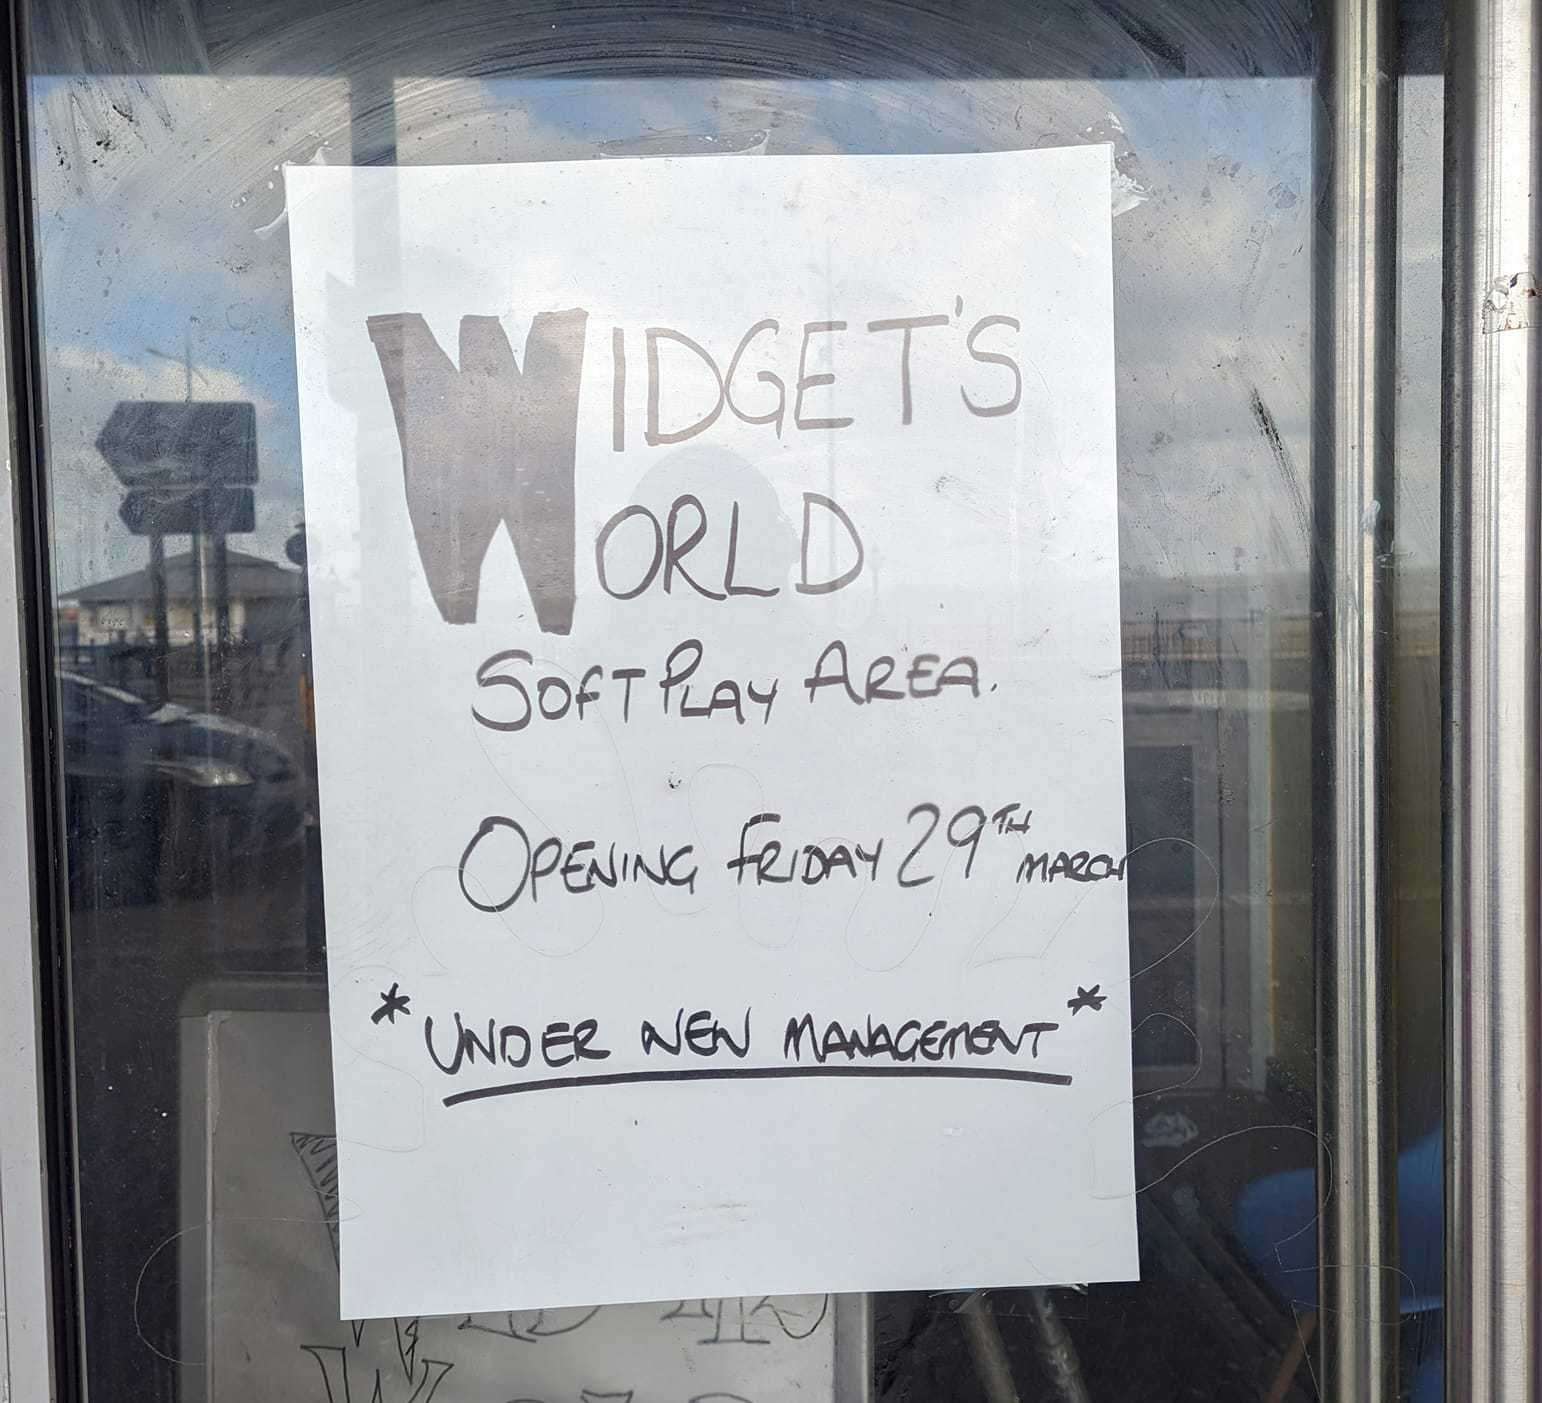 WIDGET'S
WORLD
SOFT PLAY AREA.
OPENING FRIDAY 29TH MARCH
*UNDER NEW MANAGEMENT*